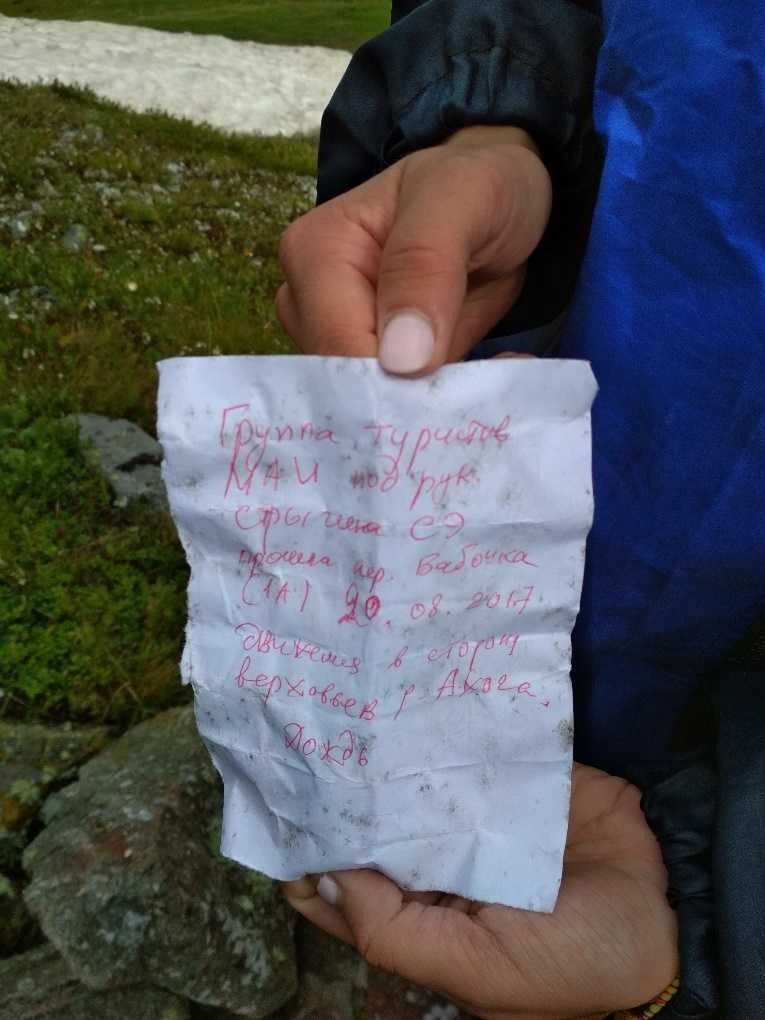 Группа туристов
МАИ под рук.
Стрыгина СЭ
прошла пер. Бабочка
(1А) 20.08.2017
Движемся в сторону
верховьев р. Ахога.
Дождь